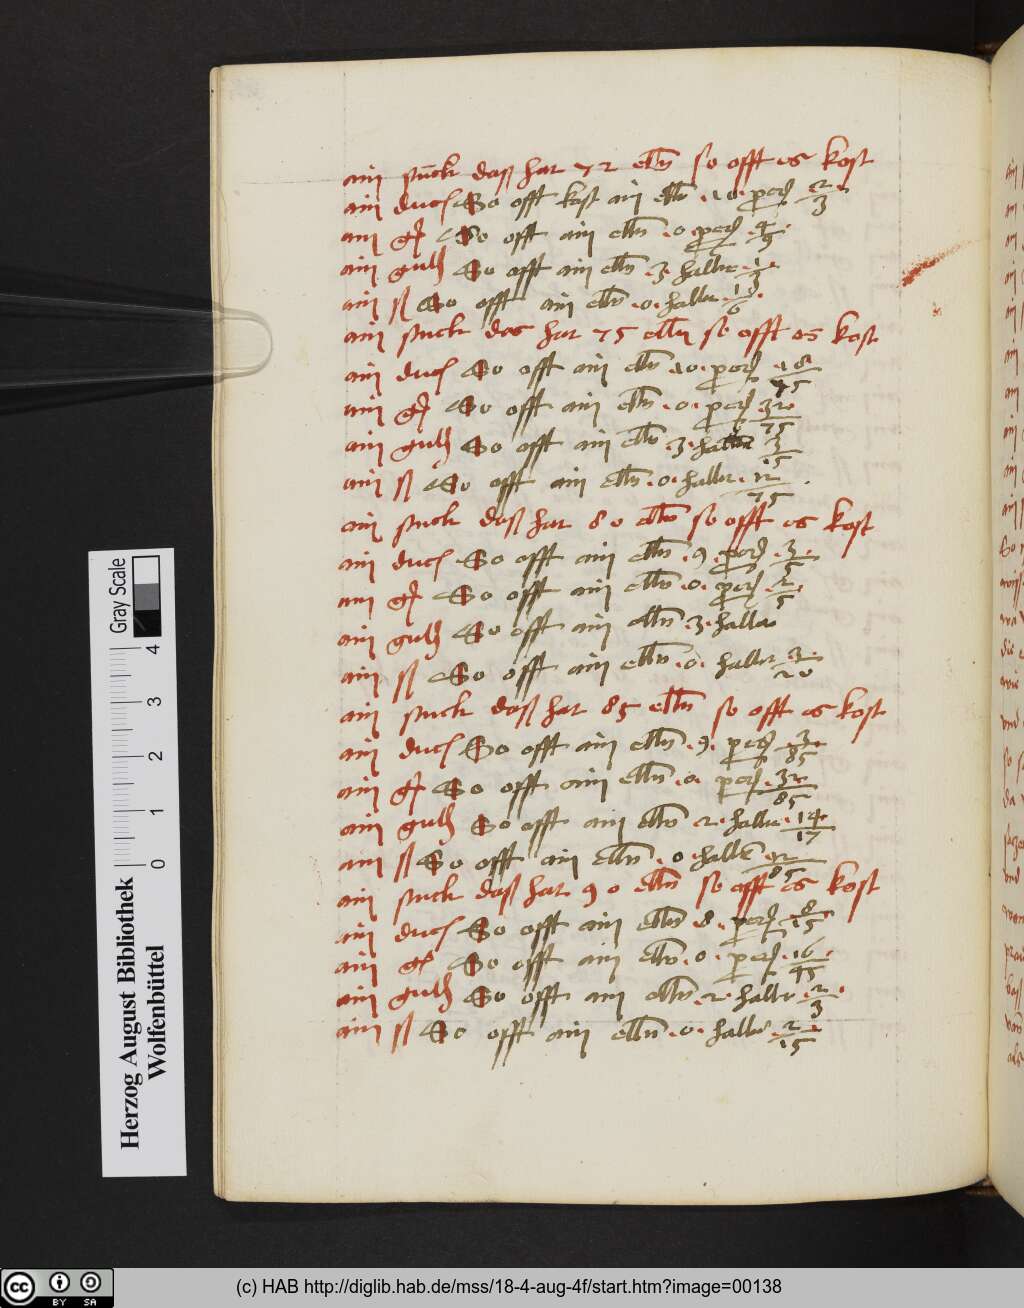 ain stuck daß hat 72 elln so offt es kost
ain duc So offt kost ain elln .10. perch 2/3
ain gr So offt ain elln .0. perch 4/9
ain guld So offt ain elln .3. haller 1/3
ain ß So offt ain elln .0. haller 1/6
ain stuck das hat 75 elln so offt es kost
ain duc So offt ain elln .10. perch 18/75
ain gr So offt ain elln .0. perch 32/75
ain guld So offt ain elln .3. haller 3/15
ain ß So offt ain elln .0. haller 12/75
ain stuck daß hat 80 elln so offt es kost
ain duc So offt ain elln .9. perch 3/5
ain gr So offt ain elln .0. perch 2/5
ain guld So offt ain elln .3. haller
ain ß So offt ain elln .0. haller 3/20
ain stuck daß hat 85 elln so offt es kost
ain duc So offt ain elln .9. perch 3/85
ain gr So offt ain elln .0. perch 32/85
ain guld So offt ain elln .2. haller 14/17
ain ß So offt ain elln .0. haller 12/85
ain stuck daß hat 90 elln so offt es kost
ain duc So offt ain elln .8. perch 8/15
ain gr So offt ain elln .0. perch 16/45
ain guld So offt ain elln .2. haller 2/3
ain ß So offt ain elln .0. haller 2/15
Herzog August Bibliothek
Wolfenbüttel
0 1 2 3 4
Gray Scale
(c) HAB http://diglib.hab.de/mss/18-4-aug-4f/start.htm?image=00138
cc BY SA